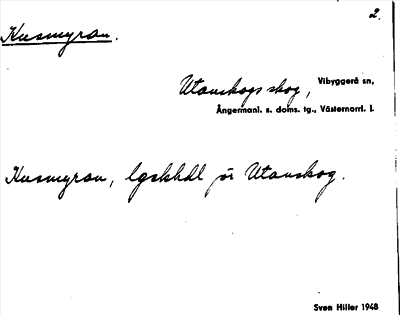 2.
Kusmyran.
Utanskogs skog, Vibyggerå sn,
Ångermanl. s. doms. tg., Västernorrl. l.
Kusmyran, lgskhdl på Utanskog.
Sven Hiller 1948